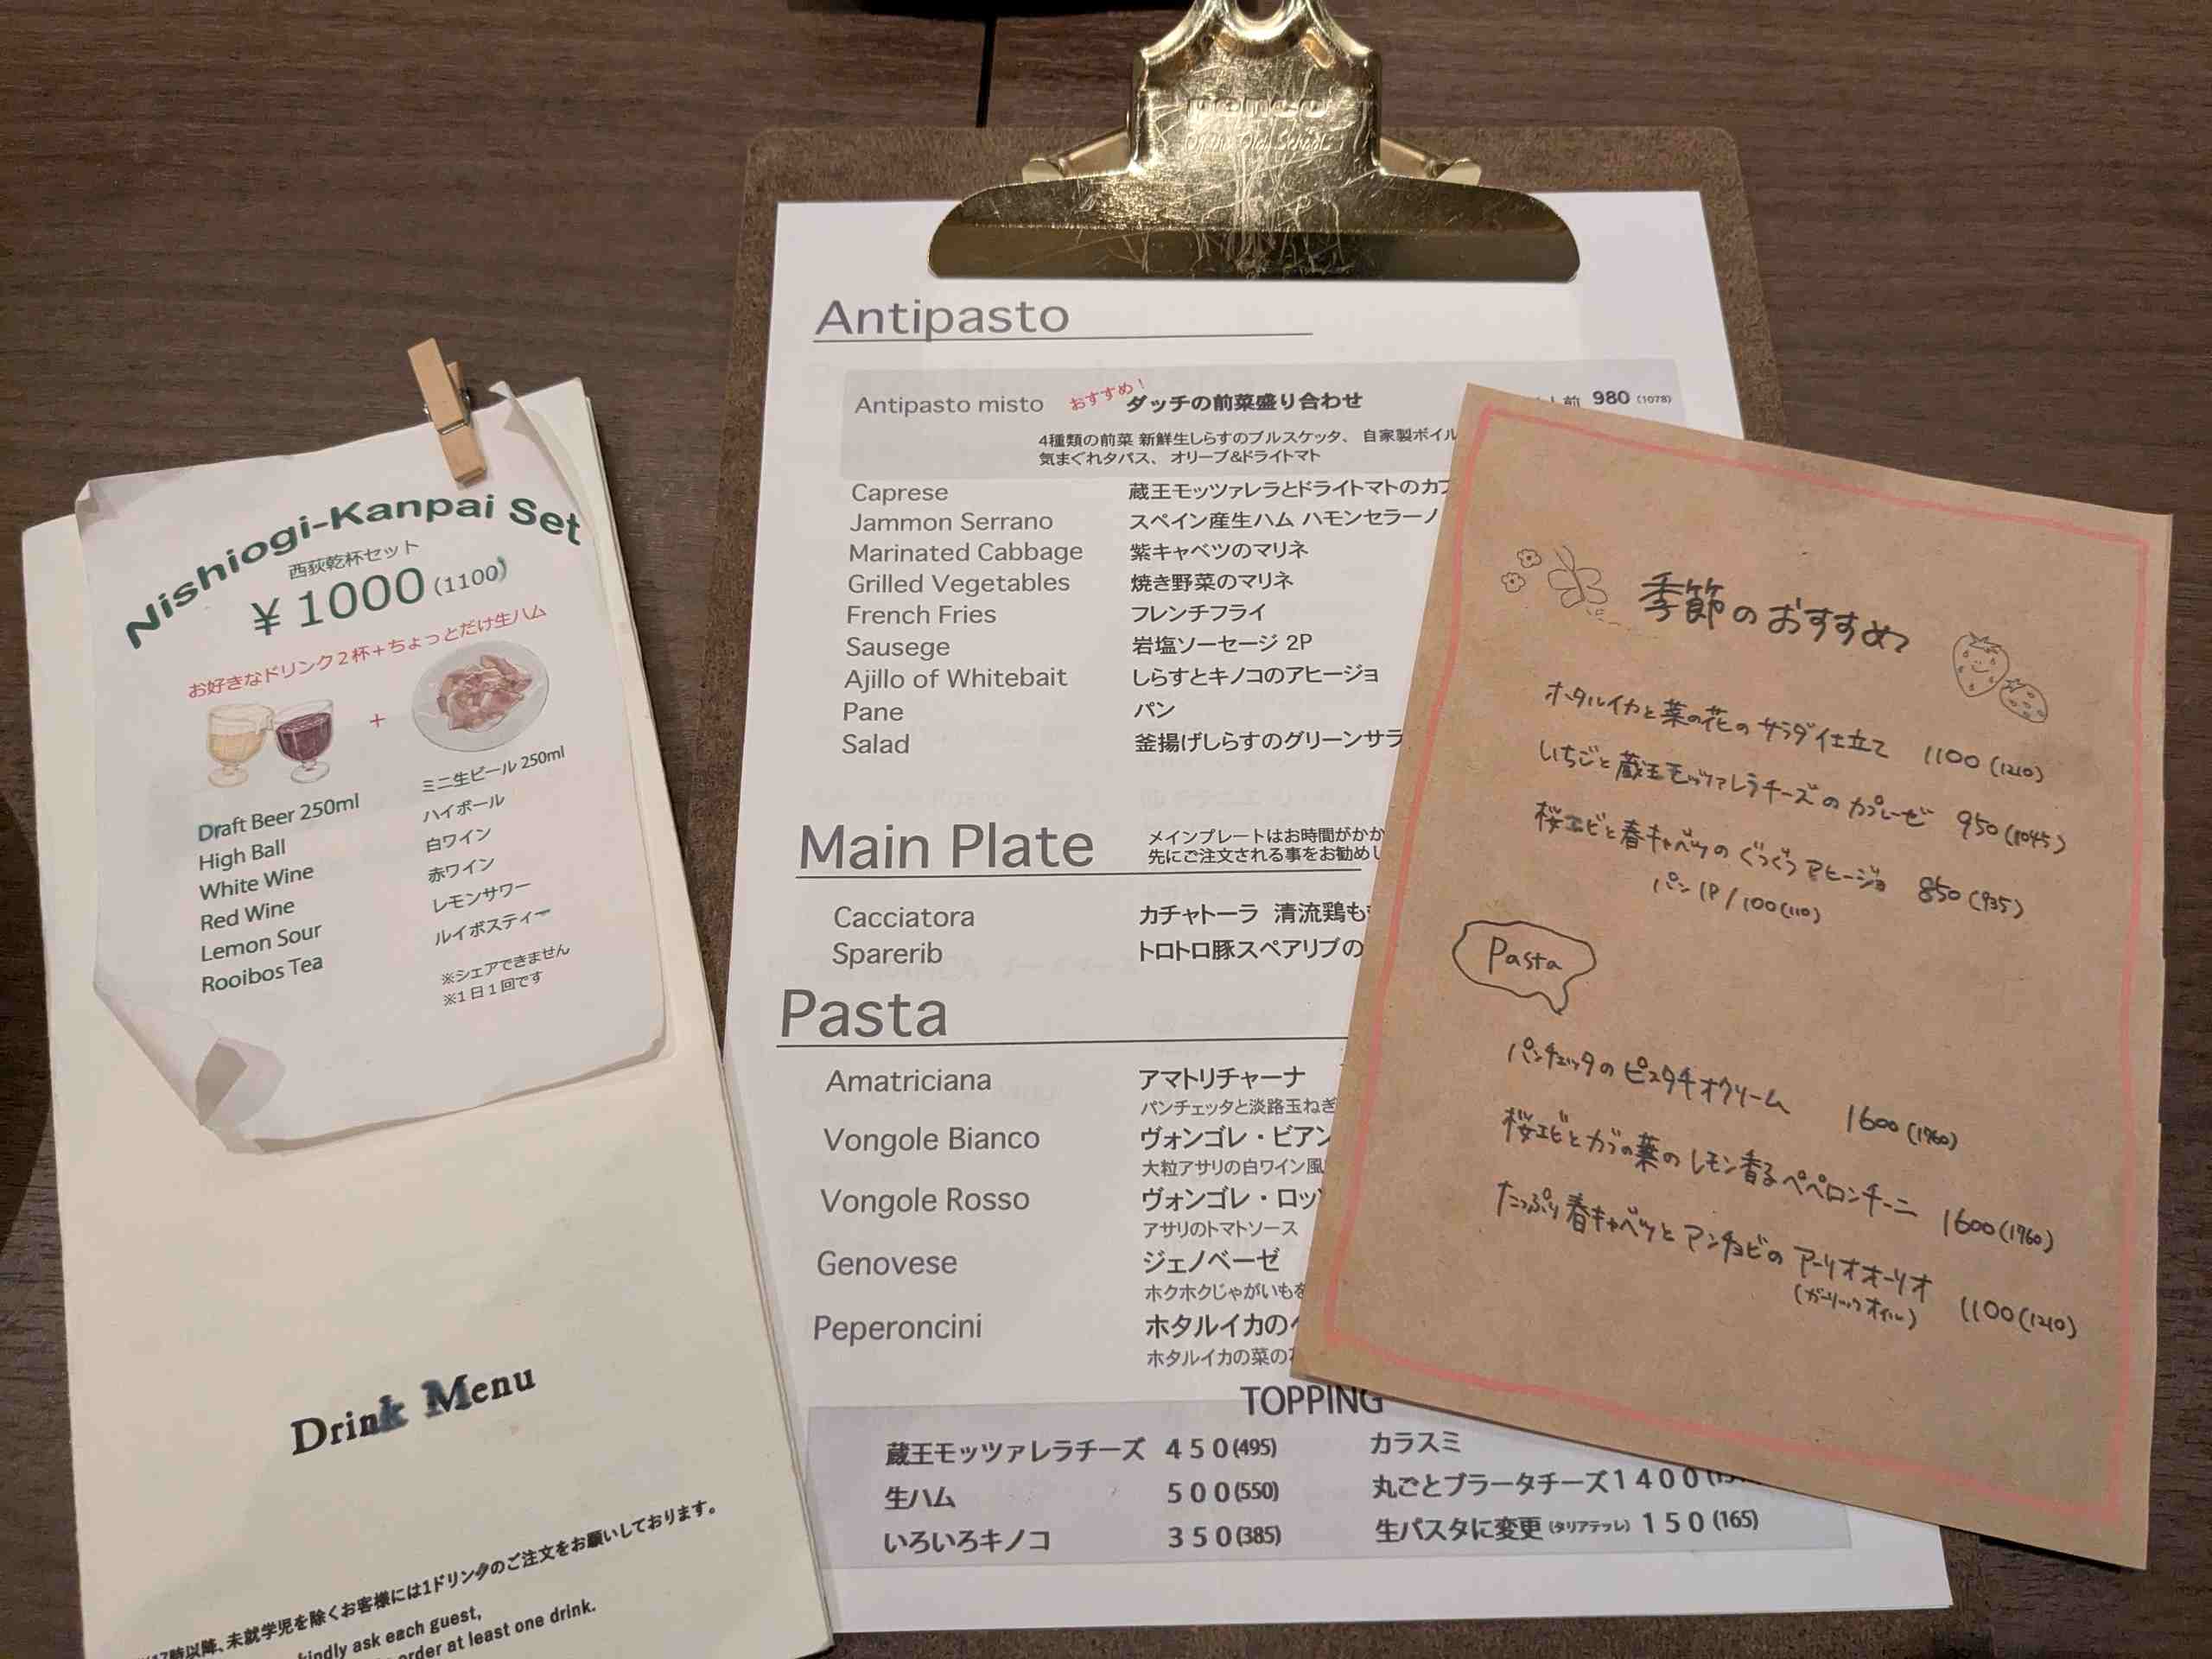 Nishiogi-Kanpai Set
西荻乾杯セット
¥1000(1100)
お好きなドリンク2杯+ちょっとだけ生ハム
+
Draft Beer 250ml ミニ生ビール 250ml
High Ball ハイボール
White Wine 白ワイン
Red Wine 赤ワイン
Lemon Sour レモンサワー
Rooibos Tea ルイボスティー
※シェアできません
※1日1回です
Drink Menu
17時以降、未就学児を除くお客様には1ドリンクのご注文をお願いしております。
kindly ask each guest,
order at least one drink.
Antipasto
Antipasto misto おすすめ! ダッチの前菜盛り合わせ 人前 980 (1078)
4種類の前菜 新鮮生しらすのブルスケッタ、 自家製ボイル
気まぐれタパス、 オリーブ&ドライトマト
Caprese 蔵王モッツァレラとドライトマトのカプ
Jammon Serrano スペイン産生ハム ハモンセラーノ
Marinated Cabbage 紫キャベツのマリネ
Grilled Vegetables 焼き野菜のマリネ
French Fries フレンチフライ
Sausege 岩塩ソーセージ 2P
Ajillo of Whitebait しらすとキノコのアヒージョ
Pane パン
Salad 釜揚げしらすのグリーンサラ
Main Plate メインプレートはお時間がかか
先にご注文される事をお勧めし
Cacciatora カチャトーラ 清流鶏も
Sparerib トロトロ豚スペアリブの
Pasta
Amatriciana アマトリチャーナ
パンチェッタと淡路玉ねぎ
Vongole Bianco ヴォンゴレ・ビアン
大粒アサリの白ワイン風
Vongole Rosso ヴォンゴレ・ロッ
アサリのトマトソース
Genovese ジェノベーゼ
ホクホクじゃがいもを
Peperoncini ホタルイカの
ホタルイカの菜の
TOPPING
蔵王モッツァレラチーズ 450(495) カラスミ
生ハム 500(550) 丸ごとブラータチーズ1400
いろいろキノコ 350(385) 生パスタに変更(タリアテッレ) 150(165)
季節のおすすめ
ホタルイカと菜の花のサラダ仕立て 1100(1210)
いちごと蔵王モッツァレラチーズのカプレーゼ 950(1045)
桜エビと春キャベツのぐつぐつアヒージョ 850(935)
パン1P/100(110)
Pasta
パンチェッタのピスタチオクリーム 1600(1760)
桜エビとカブの葉のレモン香るペペロンチーニ 1600(1760)
たっぷり春キャベツとアンチョビのアーリオオーリオ 1100(1210)
(ガーリックオイル)